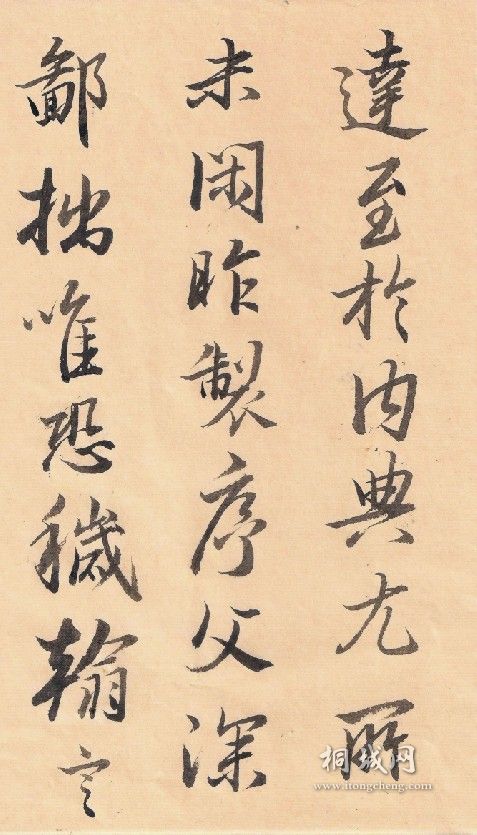 達至於内典尤所
未閑昨製序文深
鄙拙唯恐穢翰
桐城网
www.itongcheng.com